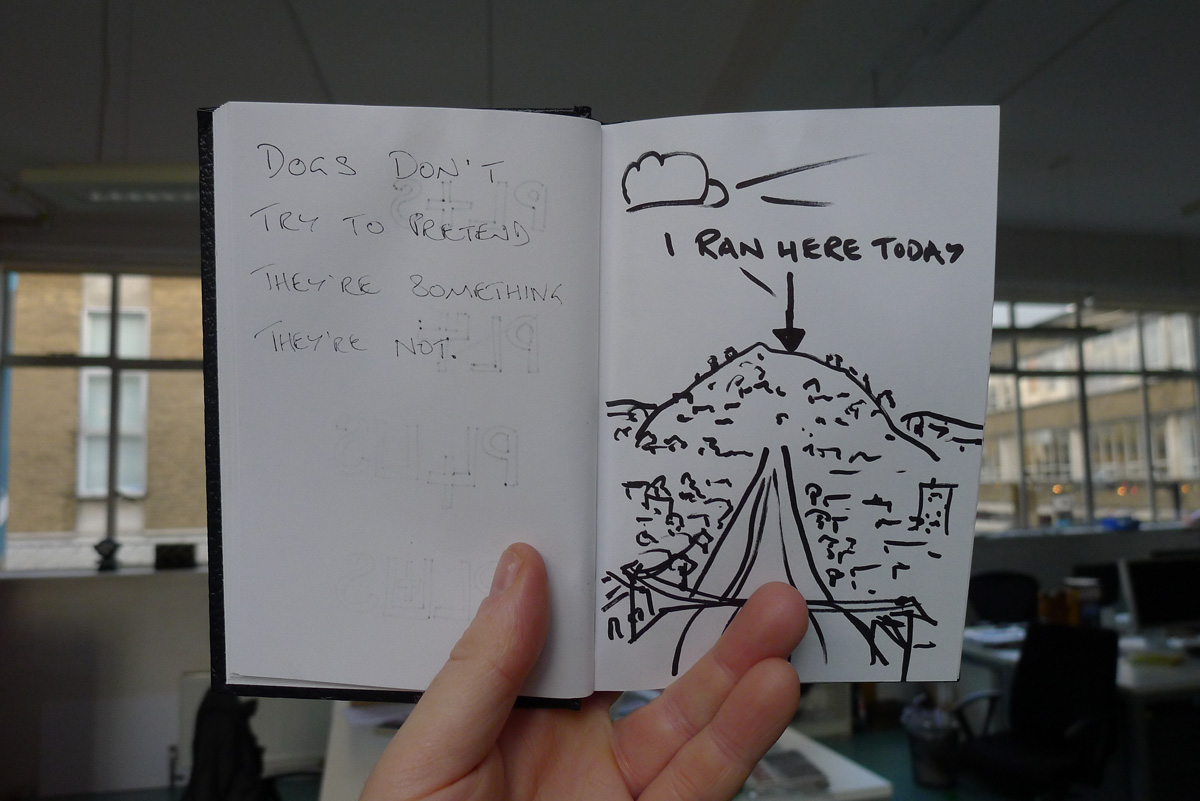 DOGS DON'T
TRY TO PRETEND
THEY'RE SOMETHING
THEY'RE NOT.
I RAN HERE TODAY